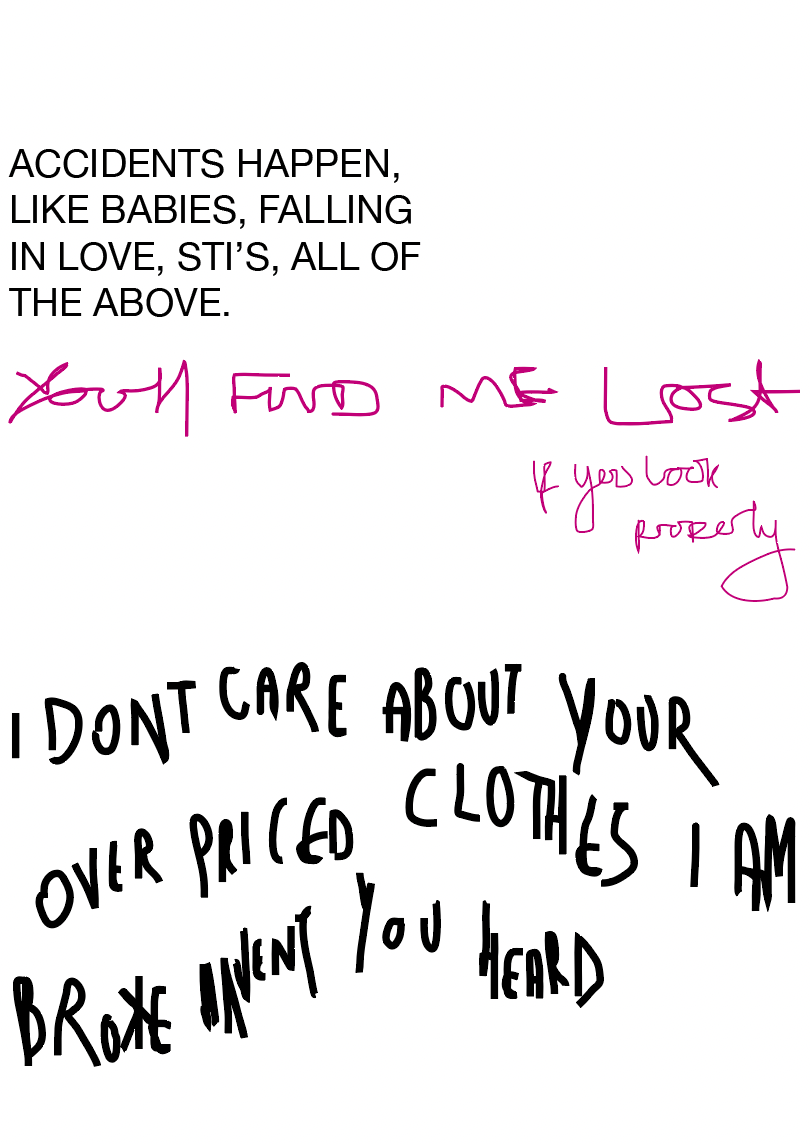 ACCIDENTS HAPPEN,
LIKE BABIES, FALLING
IN LOVE, STI’S, ALL OF
THE ABOVE.
Youll FIND ME LOST
If you look
properly
I DONT CARE ABOUT YOUR
OVER PRICED CLOTHES I AM
BROKE HAVENT YOU HEARD